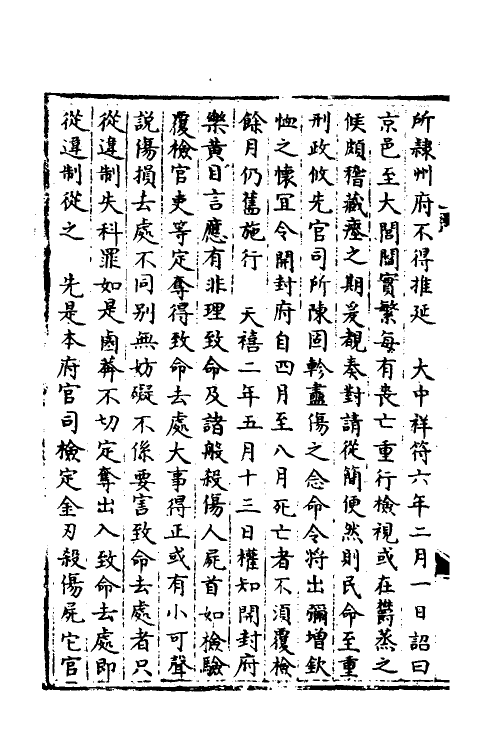 所隸州府不得推延　大中祥符六年二月一日詔曰
京邑至大閭閻實繁每有喪亡重行檢視或在鬱蒸之
候頗稽藏瘞之期爰覩奏對請從簡便然則民命至重
刑政攸先官司所陳固軫盡傷之念命令將出彌增欽
恤之懷冝令開封府自四月至八月死亡者不須覆檢
餘月仍舊施行　天禧二年五月十三日權知開封府
樂黃目言應有非理致命及諸般殺傷人屍首如檢驗
覆檢官吏等定奪得致命去處大事得正或有小可聲
說傷損去處不同別無妨礙不係要害致命去處者只
從違制失科罪如是鹵莽不切定奪出入致命去處即
從違制從之　先是本府官司檢定金刃殺傷屍它官